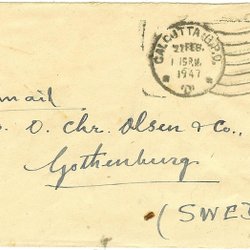 CALCUTTA G.P.O.
27 FEB.
1947
mail
. O. Chr. Olsen & Co.,
Gothenburg
(SWE